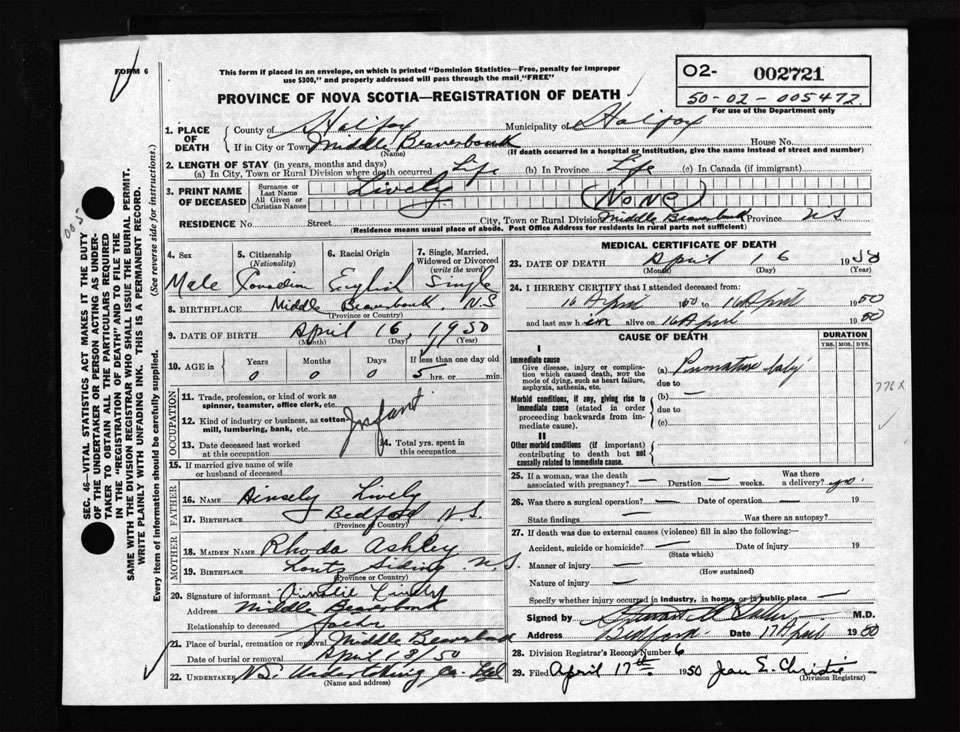 FORM 6
This form if placed in an envelope, on which is printed "Dominion Statistics—Free, penalty for improper
use $300," and properly addressed will pass through the mail "FREE"
PROVINCE OF NOVA SCOTIA—REGISTRATION OF DEATH
O2- 002721
50-02-005472
For use of the Department only
1. PLACE OF DEATH
County of Halifax Municipality of Halifax
If in City or Town Middle Beaverbank House No.
(Name) (If death occurred in a hospital or institution, give the name instead of street and number)
2. LENGTH OF STAY (in years, months and days)
(a) In City, Town or Rural Division where death occurred Life (b) In Province Life (c) In Canada (if immigrant)
3. PRINT NAME OF DECEASED
Surname or Last Name Lively
All Given or Christian Names (NONE)
RESIDENCE No. Street City, Town or Rural Division Middle Beaverbank Province N.S
(Residence means usual place of abode. Post Office Address for residents in rural parts not sufficient)
4. Sex Male
5. Citizenship (Nationality) Canadian
6. Racial Origin English
7. Single, Married, Widowed or Divorced (write the word) Single
8. BIRTHPLACE Middle Beaverbank N.S
(Province or Country)
9. DATE OF BIRTH April 16, 1950
(Month) (Day) (Year)
10. AGE in Years 0 Months 0 Days 0 If less than one day old 5 hrs. or min.
OCCUPATION
11. Trade, profession, or kind of work as spinner, teamster, office clerk, etc.
12. Kind of industry or business, as cotton mill, lumbering, bank, etc. Infant
13. Date deceased last worked at this occupation
14. Total yrs. spent in this occupation
15. If married give name of wife or husband of deceased
FATHER
16. NAME Ainsely Lively
17. BIRTHPLACE Bedford N.S.
(Province or Country)
MOTHER
18. MAIDEN NAME Rhoda Ashley
19. BIRTHPLACE Siding N.S.
(Province or Country)
20. Signature of informant Lively
Address Middle Beaverbank
Relationship to deceased
21. Place of burial, cremation or removal Middle Beaverbank
Date of burial or removal April 18/50
22. UNDERTAKER N.S. Undertaking Co. Ltd
(Name and address)
MEDICAL CERTIFICATE OF DEATH
23. DATE OF DEATH April 16 1950
(Month) (Day) (Year)
24. I HEREBY CERTIFY that I attended deceased from:
16 April 1950 to 16 April 1950
and last saw h im alive on 16 April 1950
CAUSE OF DEATH
DURATION
YRS. MOS. DYS.
I
Immediate cause
Give disease, injury or complication which caused death, NOT the mode of dying, such as heart failure, asphyxia, asthenia, etc.
(a) Premature baby
due to
776X
Morbid conditions, if any, giving rise to immediate cause (stated in order proceeding backwards from immediate cause).
(b) —
due to
(c)
II
Other morbid conditions (if important) contributing to death but not causally related to immediate cause.
25. If a woman, was the death associated with pregnancy? — Duration — weeks. Was there a delivery?
26. Was there a surgical operation? — Date of operation — 19
State findings — Was there an autopsy?
27. If death was due to external causes (violence) fill in also the following:
Accident, suicide or homicide? — Date of injury 19
(State which)
Manner of injury —
(How sustained)
Nature of injury —
Specify whether injury occurred in industry, in home, or in public place —
Signed by M.D.
Address Bedford. Date 17 April 1950
28. Division Registrar's Record Number 6
29. Filed April 17th 1950 Jean E. Christie
(Division Registrar)
SEC. 46—VITAL STATISTICS ACT MAKES IT THE DUTY
OF THE UNDERTAKER OR PERSON ACTING AS UNDERTAKER TO OBTAIN ALL THE PARTICULARS REQUIRED
IN THE "REGISTRATION OF DEATH" AND TO FILE THE
SAME WITH THE DIVISION REGISTRAR WHO SHALL ISSUE THE BURIAL PERMIT.
WRITE PLAINLY WITH UNFADING INK. THIS IS A PERMANENT RECORD.
Every item of information should be carefully supplied. (See reverse side for instructions.)